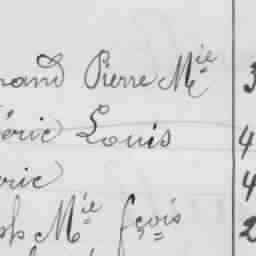 rand Pierre M^ie 3
éric Louis 4
éric 4
ph M^ie fçois 2